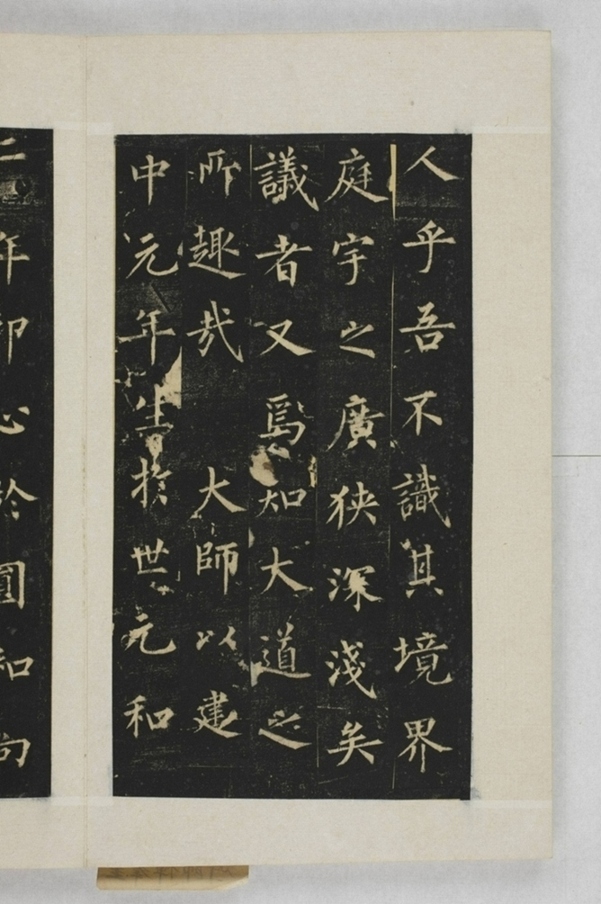 人乎吾不識其境界
庭宇之廣狹深淺矣
議者又焉知大道之
所趣哉 大師以建
中元年生於世元和
二年印心於圓和尚